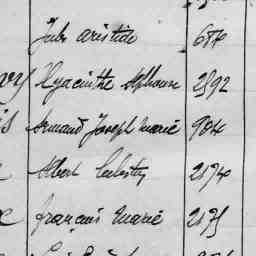 Jules aristide 684
Hyacinthe Alphonse 2592
Armand Joseph Marie 904
Albert Celestin 2174
françois Marie 2175